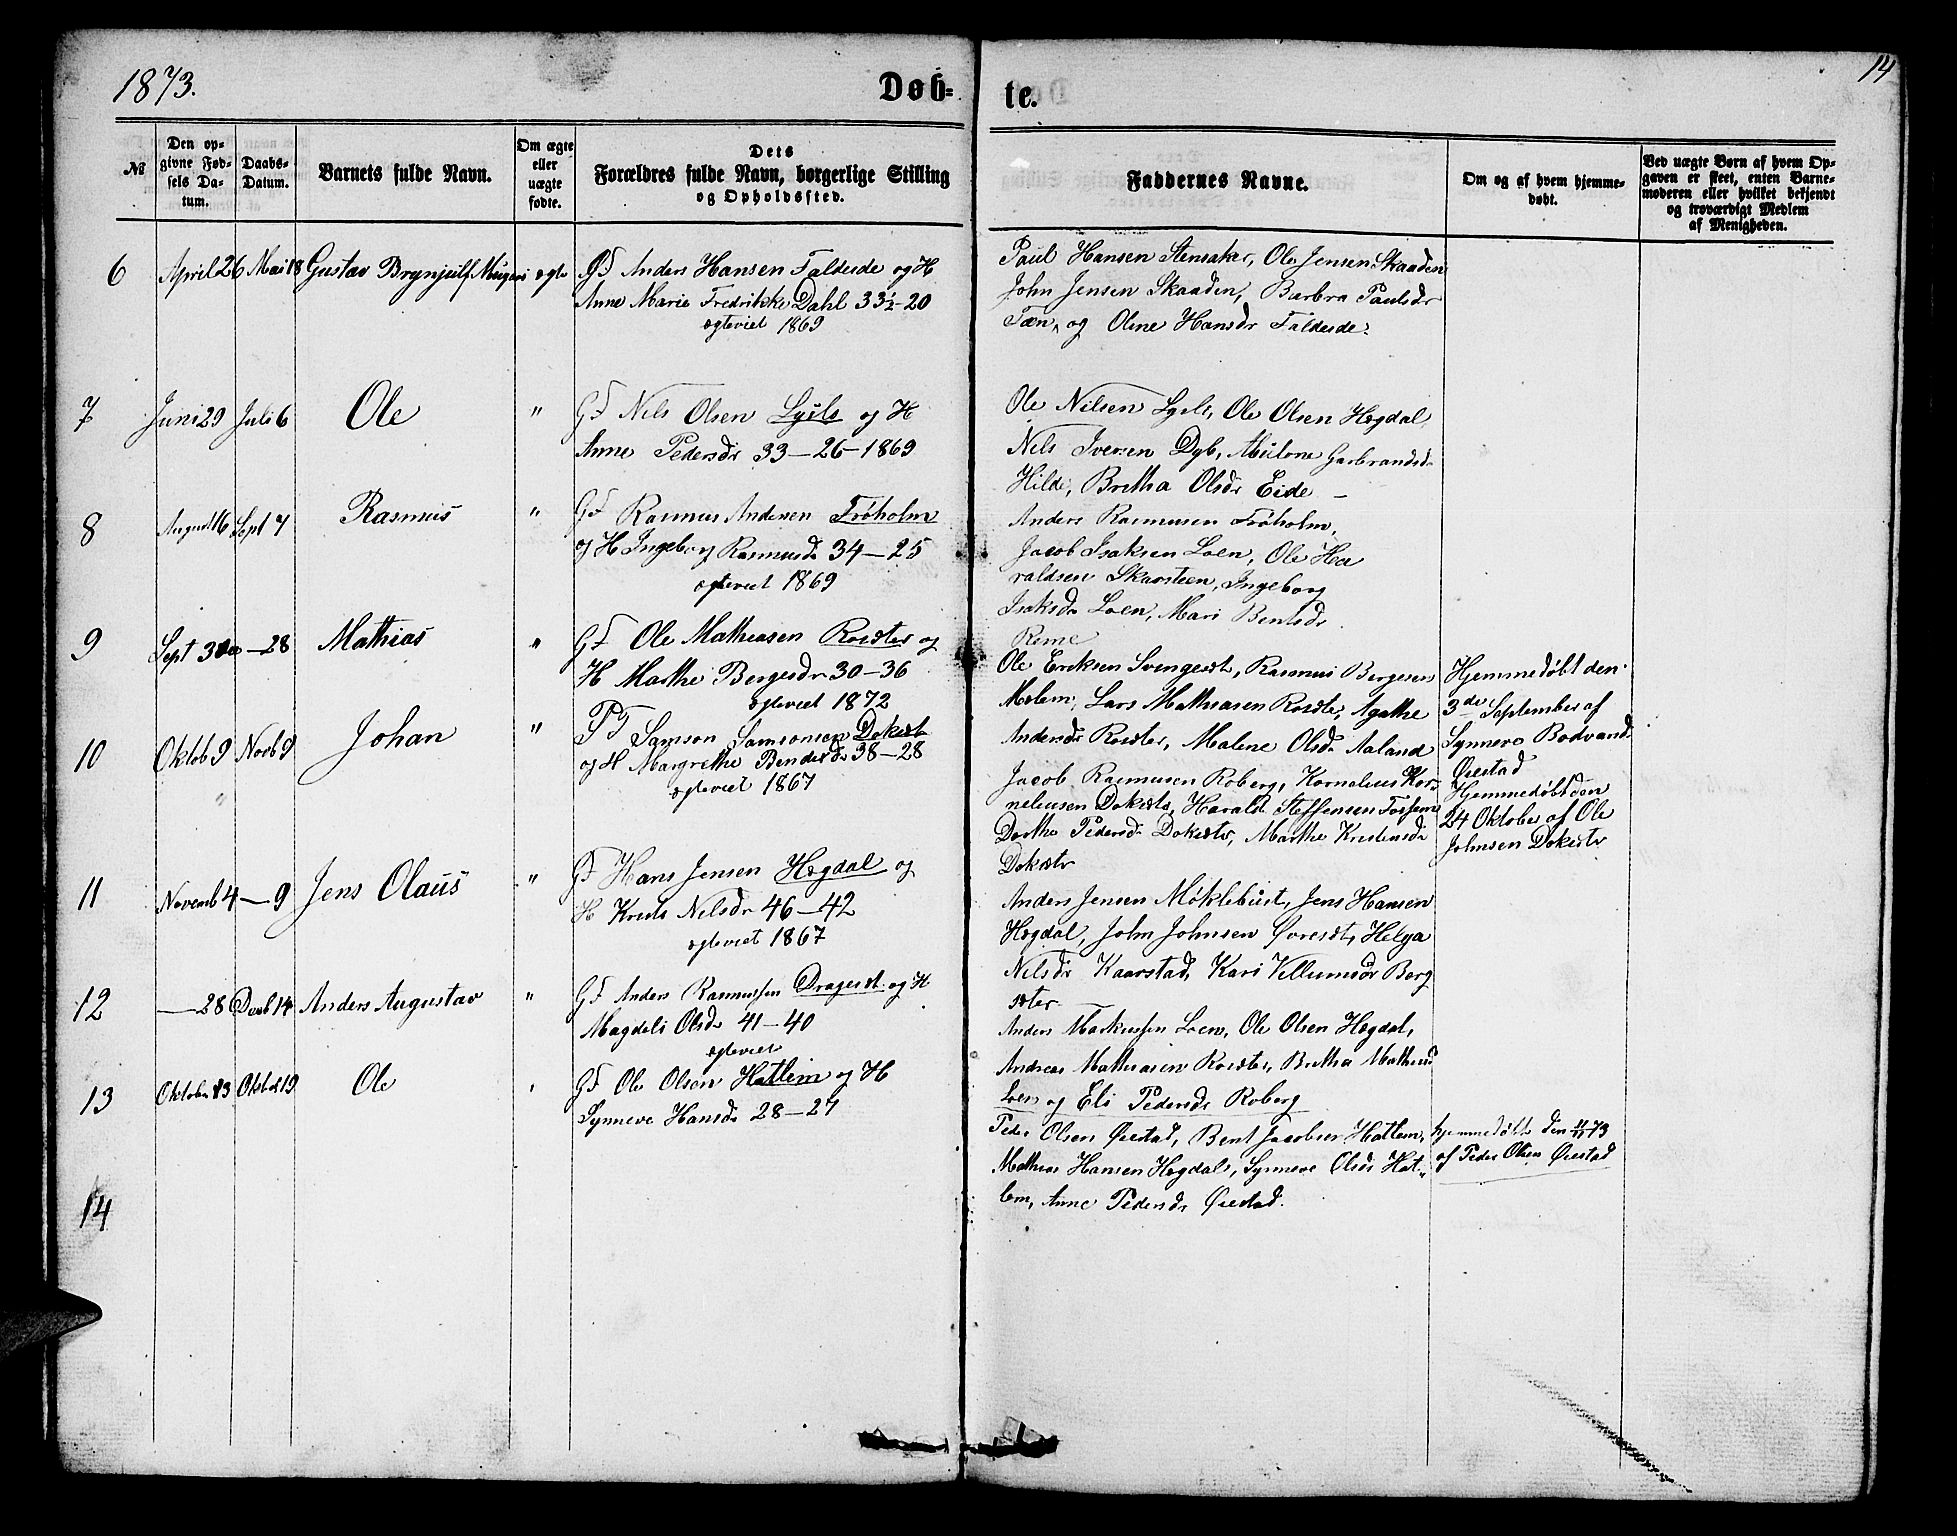 1873.
Døb-
te.
14
№
Den op-
givne Fød-
sels Da-
tum.
Daabs-
Datum.
Barnets fulde Navn.
Om ægte
eller
uægte
fødte.
Dets
Forældres fulde Navn, borgerlige Stilling
og Opholdssted.
Faddernes Navne.
Om og af hvem hjemme-
døbt.
Ved uægte Børn af hvem Op-
gaven er skeet, enten Barne-
moderen eller hvilket bekjendt
og troværdigt Medlem
af Menigheden.
6 April 26 Mai 18 Gustav Brynjulf ægte
GF Anders Hansen Faldede og H
Anne Marie Fredrikke Dahl 33½-20
ægteviet 1869
Paul Hansen Stensaker, Ole Jensen Skaaden
John Jensen Skaaden, Barbra Paulsdr
og Oline Hansdr Faldede
7 Juni 29 Juli 6 Ole "
GF Nils Olsen og H
Anne Pedersdr 33-26-1869
Ole Nilsen Ole Olsen Hægdal,
Nils Iversen Dyb, Garbrandsd
Hilde, Bretha Olsdr Eide -
8 August 16 Sept 7 Rasmus "
GF Rasmus Andersen Frøholm
og H Ingeborg Rasmusd 34-25
ægteviet 1869
Anders Rasmusen Frøholm,
Jacob Isaksen Loen, Ole Ha
raldsen Skarsteen, Ingeborg
Isaksdr Loen, Mari Bentsdr
9 Sept 3 - 28 Mathias "
GF Ole Mathiasen Rosæter og
H Marthe Bergesdr 30-36
ægteviet 1872
Ole Eriksen Rasmus Bergesen
Melem, Lars Mathiasen Rosæter, Agathe
Andersdr Rosæter, Malene Olsdr Aaland
Hjemmedøbt den
3de September af
Synneve Bodvards
Ørestad
10 Oktob 9 Novb 9 Johan "
PF Samson Samsonsen
og H Margrethe 38-28
ægteviet 1867
Jacob Rasmusen Roberg, Kornelius Kor-
neliusen Harald Steffensen
Dorthe Pedersdr Marthe Kristensdr
Hjemmedøbt den
24 Oktober af Ole
Johnsen
11 Novemb 4 - 9 Jens Olaus "
GF Hans Jensen Hægdal og
H Nilsdr 46-42
ægteviet 1867
Anders Jensen Møklebust, Jens Hansen
Hægdal, John Johnsen Helga
Nilsdr Kaarstad, Kari Villumsdr Berg
sæter
12 - 28 Decb 14 Anders Augustav "
GF Anders Rasmussen og H
Magdeli Olsdr 41-40
ægteviet
Anders Markussen Loen, Ole Olsen Hægdal,
Andreas Mathiasen Rosæter, Bretha Mathisd
Loen og Eli Pedersdr Roberg
13 Oktober 13 Oktob 19 Ole
GF Ole Olsen Hatlem og H
Synneve Hansdr 28-27
Peder Olsen Ørestad, Bent Jacobsen Hatlem,
Mathias Hansen Hægdal, Synneve Olsdr Hat-
lem, Anne Pedersdr Ørestad.
hjemmedøbt den
af Peder Olsen Ørestad
14